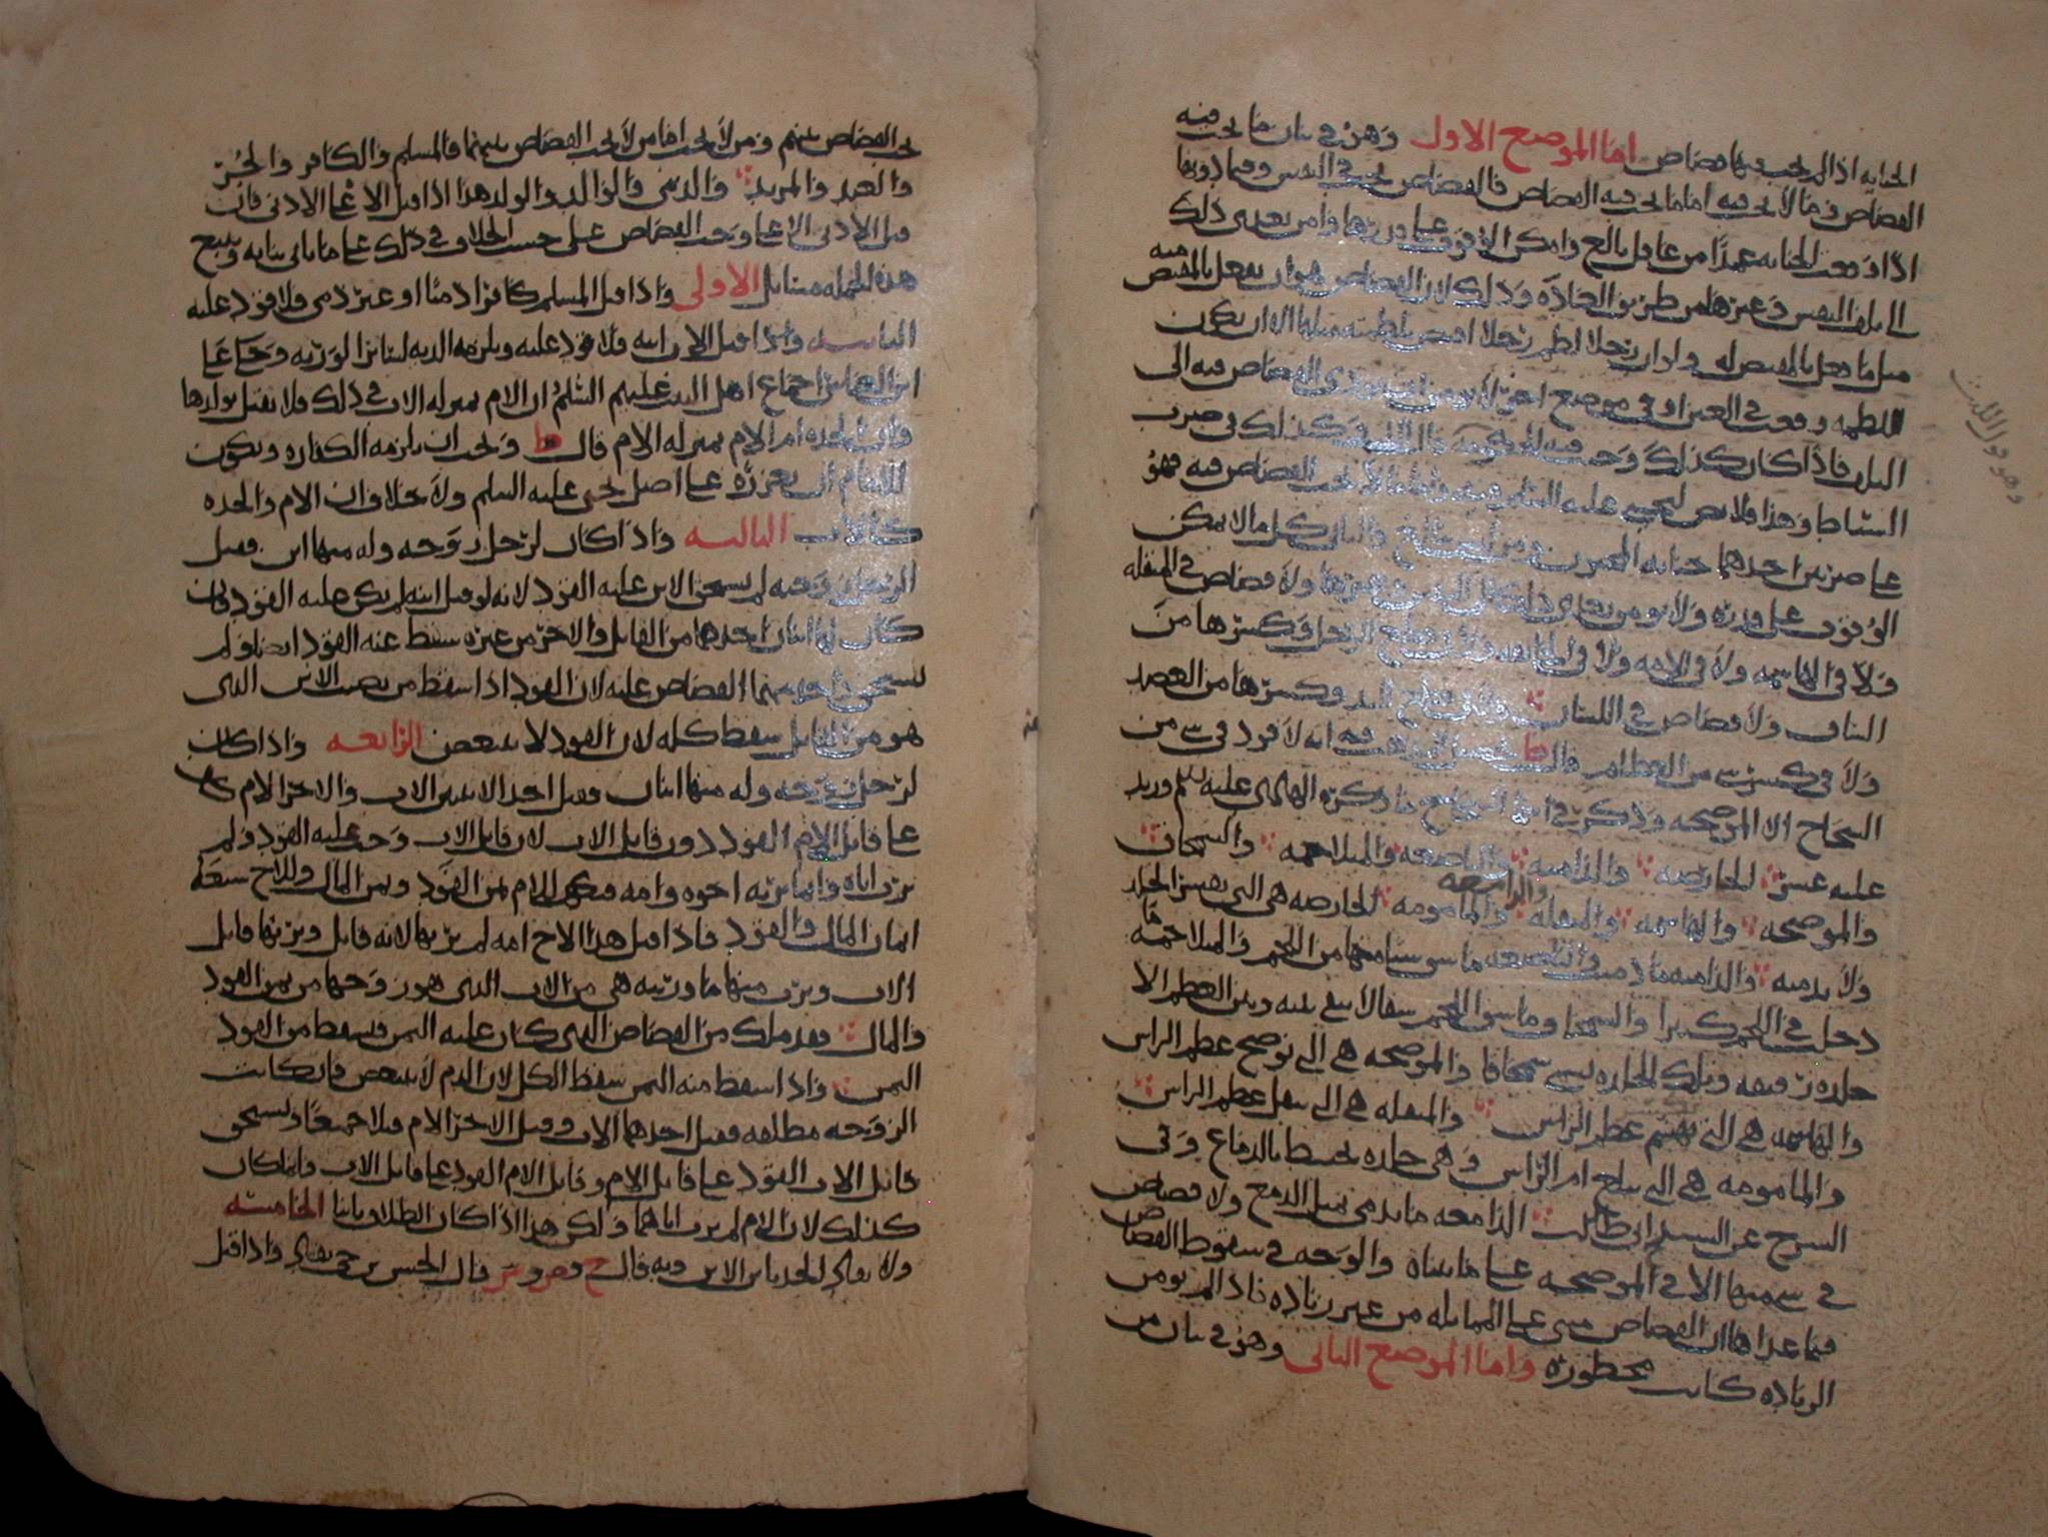 الجنايه اذا لم يجب فيها قصاص اما الموضع الاول وهو في بيان ما يجب فيه
القصاص وما لا يجب فيه اما ما يجب فيه القصاص فالقصاص يجب في النفس وفيما دونها
اذا وقعت الجنايه عمدا من عاقل بالغ وامكن الوقوف على قدرها وامن تعدي ذلك
الى تلف النفس وغيرها من طريق العادة وذلك لان القصاص هو ان يفعل بالمقتص منه
مثل ما فعل بالمقتص له ولو ان رجلا لطم رجلا اقتص بلطمته مثلها الا ان تكون
اللطمه وقعت في العين او في موضع اخر لا يؤمن ان يؤدي القصاص فيه الى
التلف فاذا كان كذلك وجب فيه الحكومه وكذلك في ضرب
السياط وهذا فلا نص ليحيى عليه السلم فيه واما ما لا يجب القصاص فيه فهو
على ضربين احدهما جنايه المجنون ومن ليس ببالغ والثاني كل ما لا يمكن
الوقوف على قدره ولا يؤمن تعدي ذلك الى النفس وغيرها ولا قصاص في المنقله
ولا في الهاشمه ولا في الامه ولا في الجائفه ولا في قطع الرجل وكسرها من
الساق ولا قصاص في اللسان ولا في قطع اليد وكسرها من العضد
ولا في كسر شي من العظام قال ط انه لا قود في شي من
الشجاج الا الموضحه وذكر في ما ذكره الهادي عليه سلم وزيد
عليه عشر الحارصه والداميه والباضعه والمتلاحمه والسمحاق
والموضحه والهاشمه والمنقله والدامعه والمامومه الحارصه هي التي تقشر الجلد
ولا تدميه والداميه ما دميت والباضعه ما شق شيا منها من اللحم والمتلاحمه ما
دخلت في اللحم كثيرا والسمحاق ما شق اللحم شقا لا يبقى بينه وبين العظم الا
جلده رقيقه وتلك الجلده تسمى سمحاقا والموضحه هي التي توضح عظم الراس
والهاشمه هي التي تهشم عظم الراس والمنقله هي التي تنقل عظم الراس
والمامومه هي التي تبلغ ام الراس وهي جلده تحيط بالدماغ وفي
الشرح عن السيد ابي طالب الدامعه ما يدمى مثل الدمع ولا قصاص
في شي منها الا في الموضحه على ما بيناه والوجه في سقوط القصاص
فيما عداها ان القصاص مبني على المماثله من غير زياده فاذا لم يؤمن
الزياده كانت محظوره واما الموضع الثاني وهو في بيان من
وهو قول الليث
يجب القصاص بينهم ومن لا يجب اما من لا يجب القصاص بينهما فالمسلم والكافر والحر
والعبد والمرتد والذمي والوالد والولد هذا اذا قتل الاعلى الادنى فان
قتل الادنى الاعلى وجب القصاص على حسب الخلاف في ذلك على ما ياتي بيانه ويتبع
هذه الجمله مسائل الاولى واذا قتل المسلم كافرا ذميا او غير ذمي فلا قود عليه
الثانيه واذا قتل الاب ابنه فلا قود عليه ويلزمه الديه لسائر الورثه وحكى على
ابن العباس اجماع اهل البيت عليهم السلم ان الام بمنزله الاب في ذلك فلا تقتل بولدها
وان الجده ام الام بمنزله الام قال ط ويجب ان يلزمه الكفاره ويكون
للامام ان يعزره على اصل يحيى عليه السلم ولا خلاف ان الام والجده
كالاب الثالثه واذا كان لرجل زوجه وله منها ابن فقتل
الرجل زوجته لم يستحق الابن عليه القود لانه لو قتل ابنه لم يكن عليه القود فان
كان لها ابنان احدهما من القاتل والاخر من غيره سقط عنه القود ايضا ولم
يستحق واحد منهما القصاص عليه لان القود اذا سقط من نصيب الابن الذي
هو من القاتل سقط كله لان القود لا يتبعض الرابعه واذا كان
لرجل زوجه وله منها ابنان فقتل احد الابنين الاب والاخر الام كان
على قاتل الام القود دون قاتل الاب لان قاتل الاب وجب عليه القود ولم
يرث اباه وانما يرثه اخوه وامه فكان للام ثمن القود وثمن المال وللاخ سبعه
اثمان المال والقود فاذا قتل هذا الاخ امه لم يرثها لانه قاتل ويرثها قاتل
الاب ويرث منها ما ورثته هي من الاب الذي هو زوجها من ثمن القود
والمال فقد ملك من القصاص الذي كان عليه الثمن فسقط من القود
الثمن واذا سقط منه الثمن سقط الكل لان الدم لا يتبعض فان كانت
الزوجه مطلقه فقتل احدهما الاب وقتل الاخر الام قتلا جميعا ويستحق
قاتل الاب القود على قاتل الام وقاتل الام القود على قاتل الاب وانما كان
كذلك لان الام لم ترث اباهما ولكن هذا اذا كان الطلاق باينا الخامسه
ولا يقاد الجد بابن الابن وبه قال ح وص وش قال الحسن بن حي يقاد واذا قتل